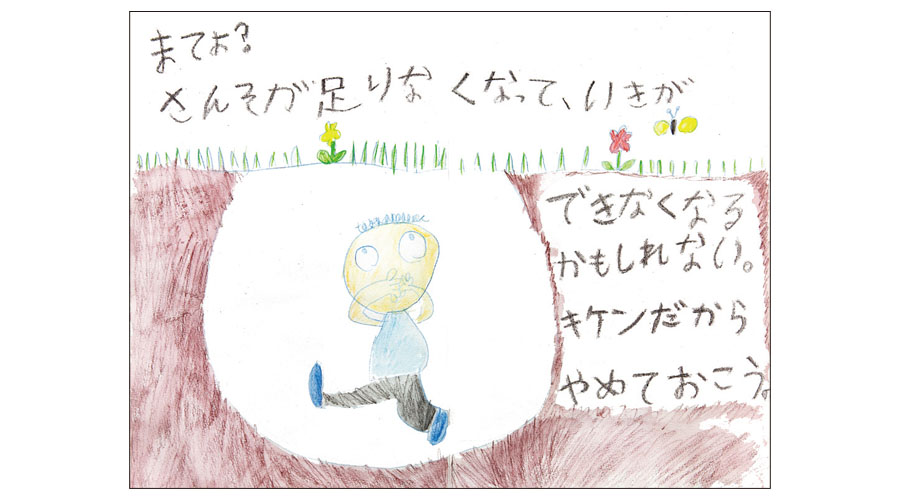 まてよ?
さんそが足りなくなって、いきが
できなくなる
かもしれない。
キケンだから
やめておこう。